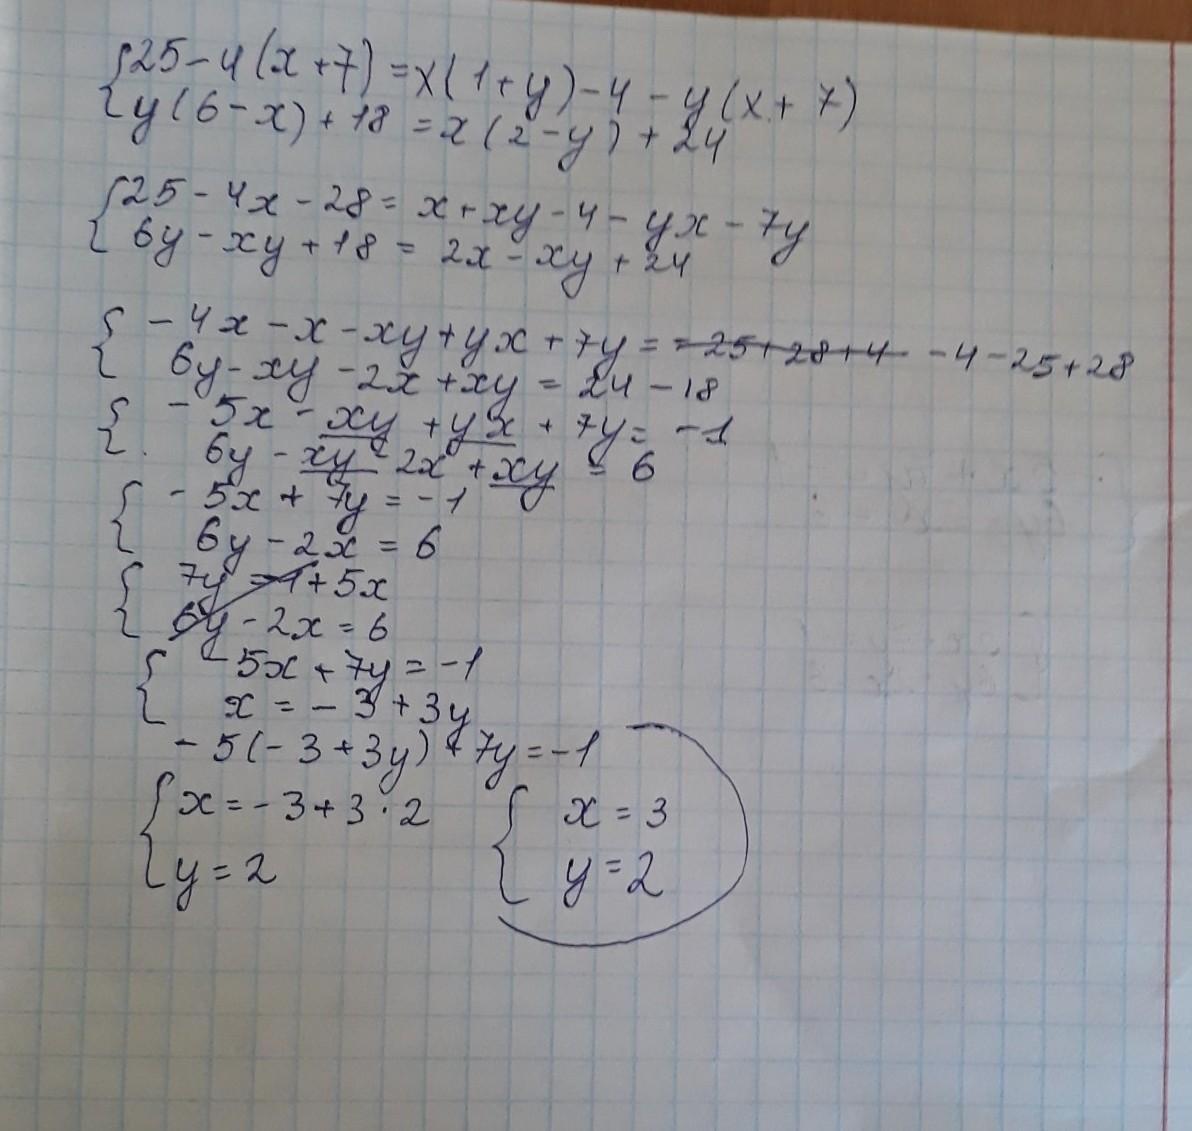 {25-4(x+7)=x(1+y)-4-y(x+7)
y(6-x)+18=x(2-y)+24
{25-4x-28=x+xy-4-yx-7y
6y-xy+18=2x-xy+24
{-4x-x-xy+yx+7y=-25+28+4 -4-25+28
6y-xy-2x+xy=24-18
{-5x-xy+yx+7y=-1
6y-xy-2x+xy=6
{-5x+7y=-1
6y-2x=6
{7y=-1+5x
6y-2x=6
{-5x+7y=-1
x=-3+3y
-5(-3+3y)+7y=-1
{x=-3+3·2 {x=3
y=2 y=2